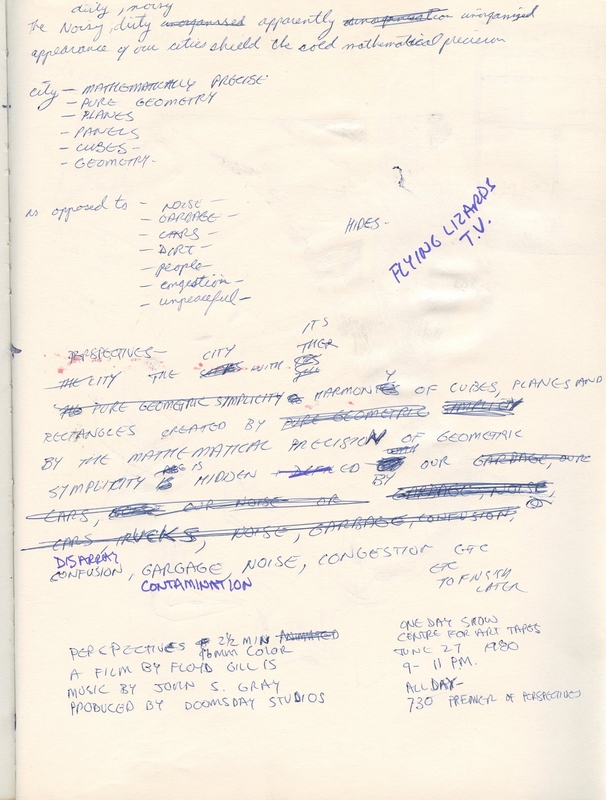 dirty, noisy
The Noisy, dirty unorganised apparently unorganized
appearance of our cities shield the cold mathematical precision
city - MATHEMATICALLY PRECISE
- PURE GEOMETRY
- PLANES
- PANELS
- CUBES -
- GEOMETRY -
as opposed to - NOISE -
- GARBAGE -
- CARS -
- DIRT -
- people -
- congestion -
- unpeaceful -
HIDES -
FLYING LIZARDS
T.V.
ITS
PERSPECTIVES - CITY
THE CITY THE WITH
THE PURE GEOMETRIC SIMPLICITY HARMONY OF CUBES, PLANES AND
RECTANGLES CREATED BY PURE GEOMETRIC SIMPLICITY
BY THE MATHEMATICAL PRECISION OF GEOMETRIC
SIMPLICITY IS HIDDEN BY OUR GARBAGE, OUR
CARS, OUR NOISE OR GARBAGE, NOISE,
CARS TRUCKS, NOISE, GARBAGE, CONFUSION,
DISARRAY
CONFUSION, GARGAGE, NOISE, CONGESTION ETC
CONTAMINATION
ETC
TO FINISH
LATER
PERSPECTIVES 2 1/2 MIN ANIMATED
16mm COLOR
A FILM BY FLOYD GILLIS
MUSIC BY JOHN S. GRAY
PRODUCED BY DOOMSDAY STUDIOS
ONE DAY SHOW
CENTRE FOR ART TAPES
JUNE 27 1980
9 - 11 PM.
ALL DAY -
730 PREMIER OF PERSPECTIVES